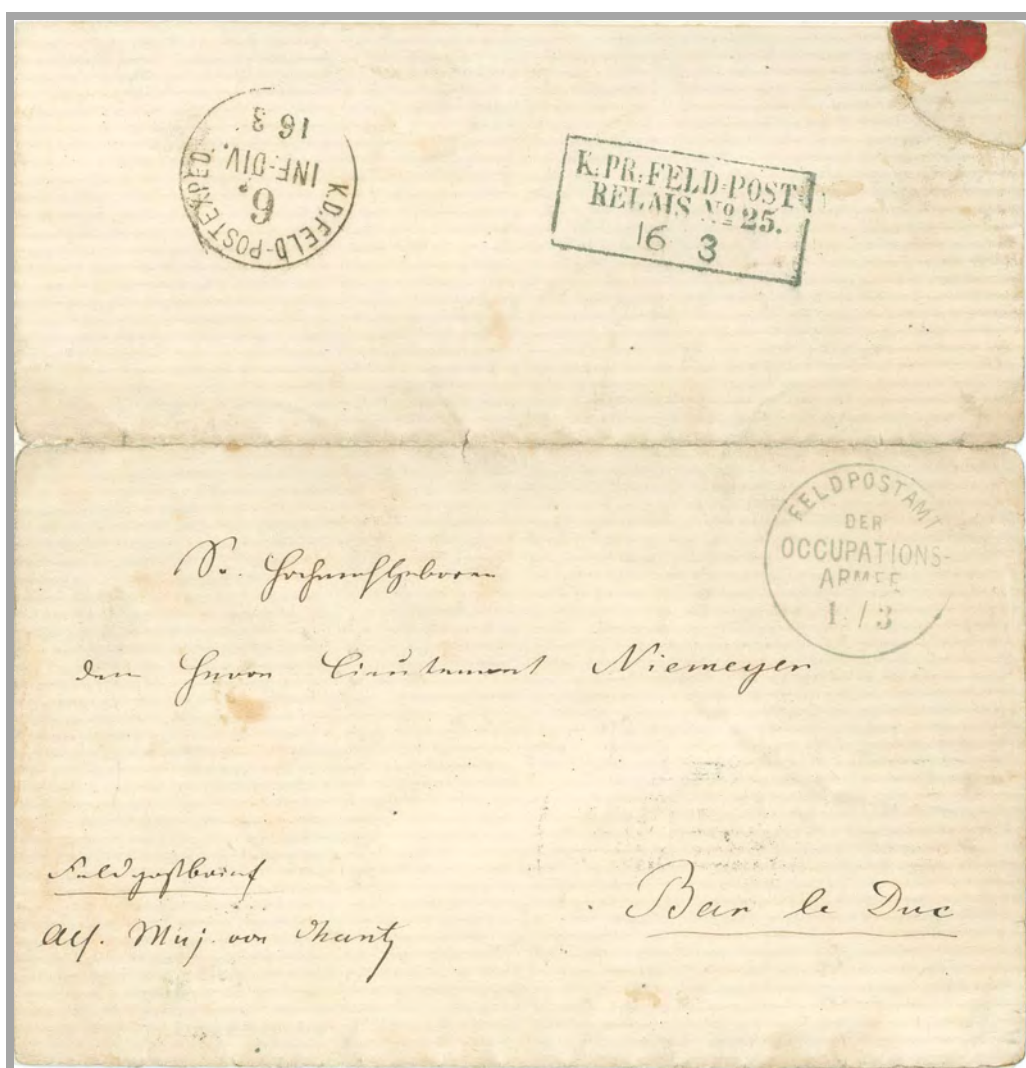 K.D.FELD-POSTEXPED.
6.
INF.-DIV.
16 3
K:PR:FELD=POST=
RELAIS No 25.
16 3
FELDPOSTAMT
DER
OCCUPATIONS-
ARMEE
1 / 3
Sr. Hochwohlgeboren
dem Herrn Lieutenant Niemeyer
Feldpostbrief
Abs. Maj. von
Bar le Duc